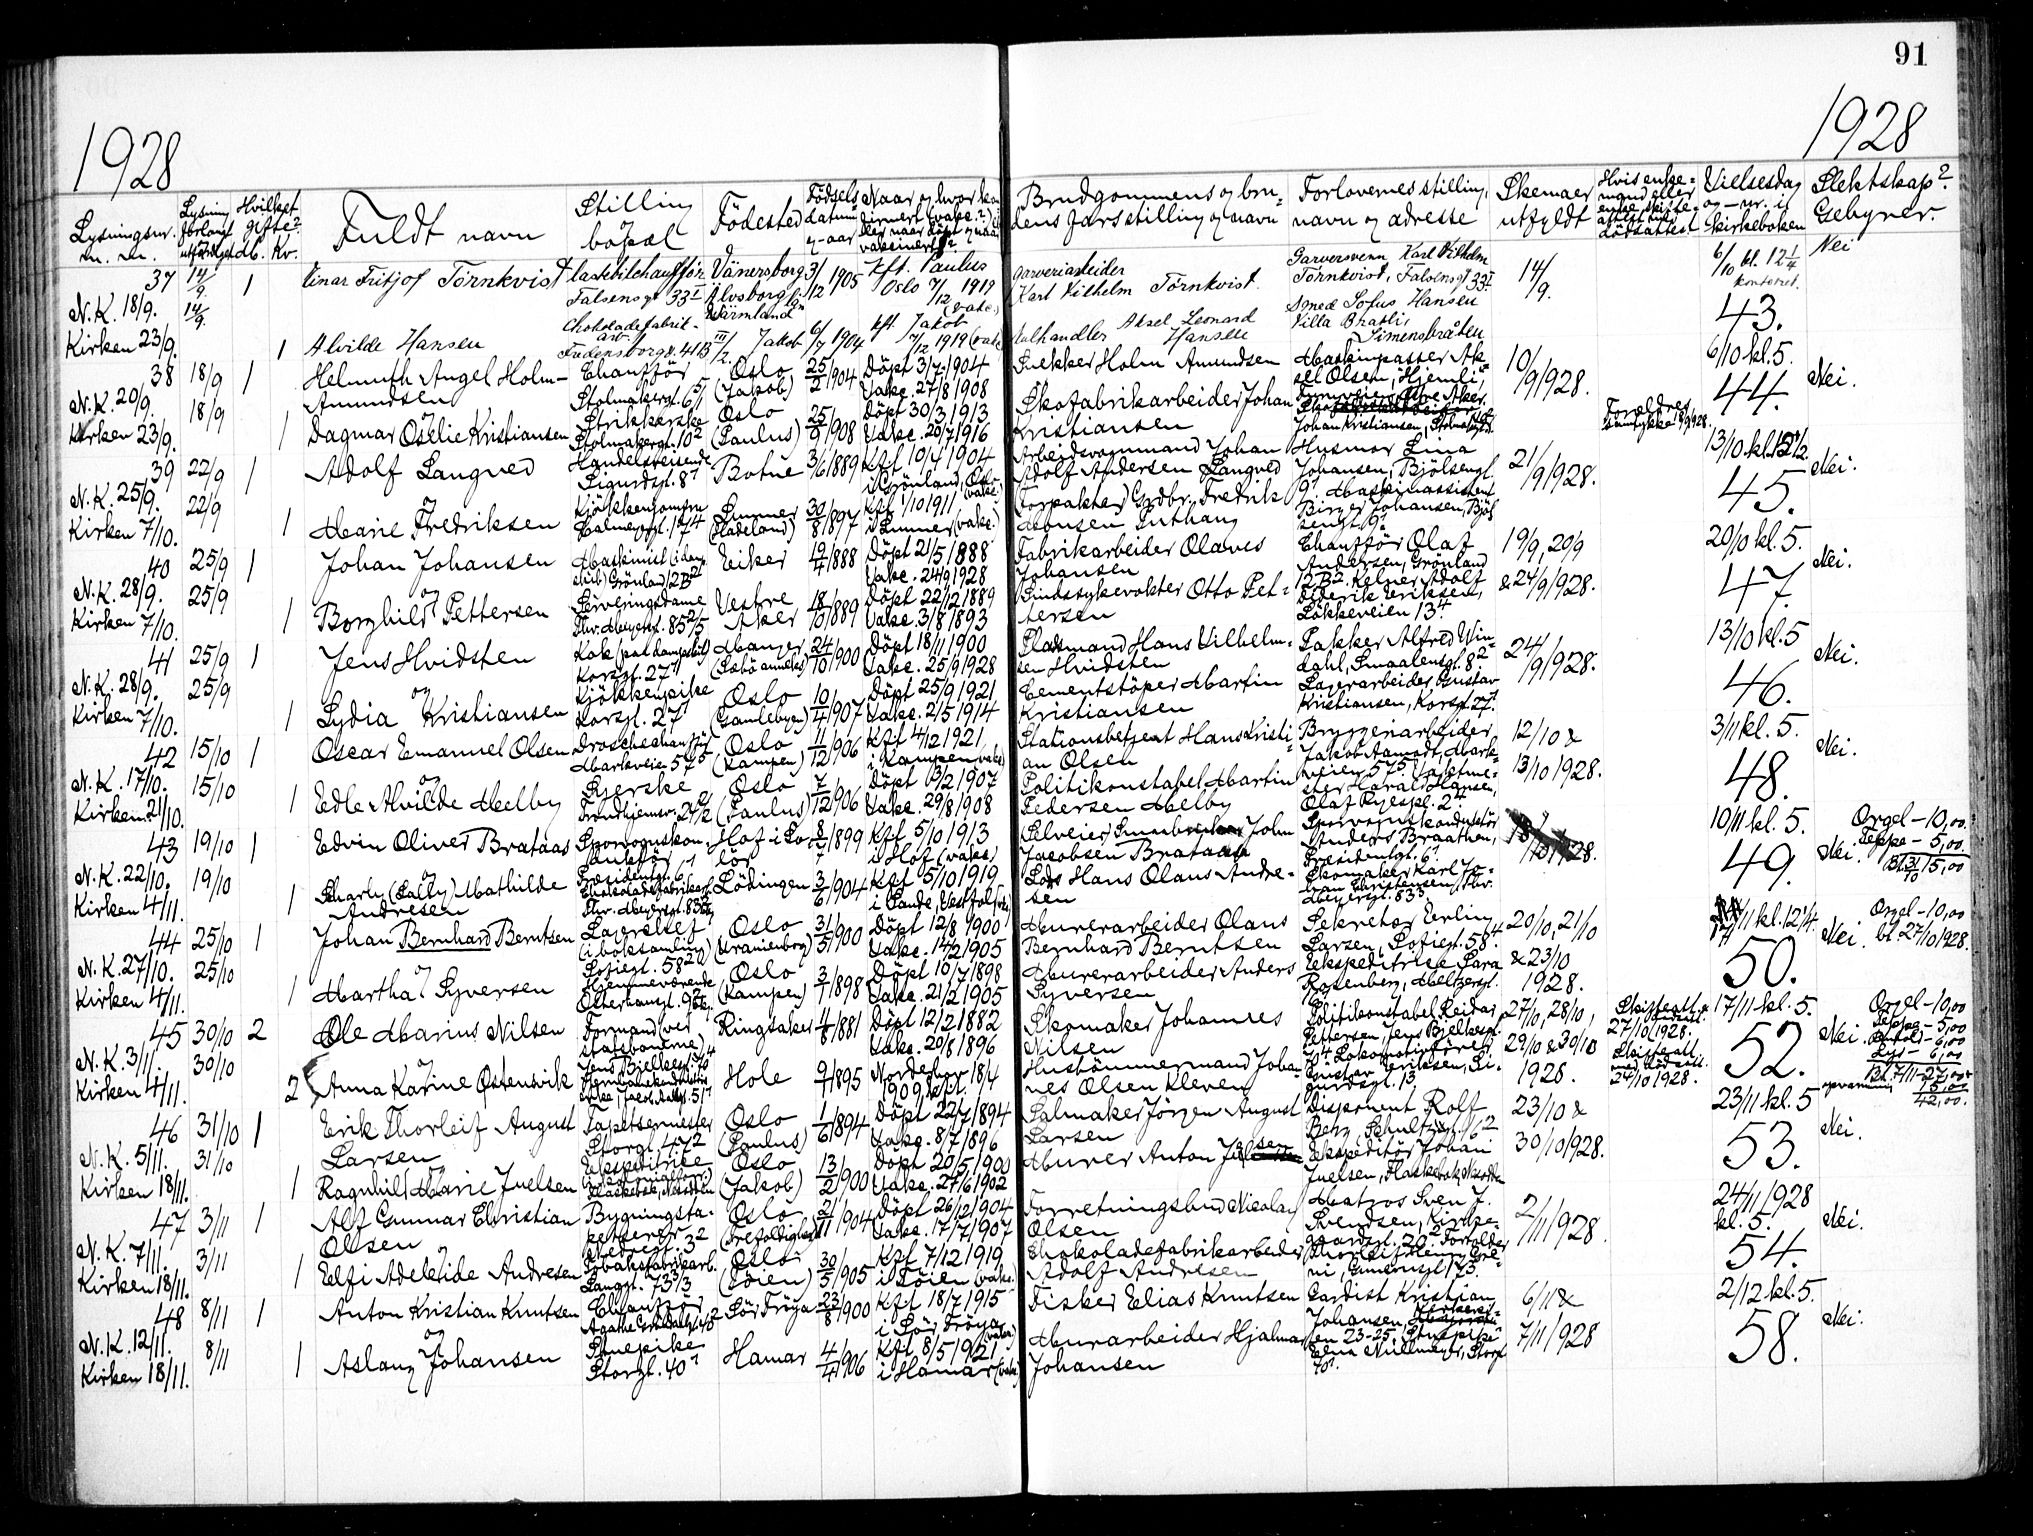 91
1928
1928
Lysningsnr. m. m.
Lysning forlangt utfærdiget
Hvilket gifte? M. Kv.
Fuldt navn
Stilling bopæl
Fødested
Fødsels datum og -aar
Brudgommens og brudens fars stilling og navn
Forlovernes stilling, navn og adresse
Skemaer utfyldt
Vielsesdag og -nr. i kirkeboken
Slektskap? Gebyrer.
37 14/9. 1 Einar Fritjof Törnkvist Lastebilchauffør Vänersborg 3/12 1905 Kft. Paulus
N.K. 18/9. 14/9. Falsensgt 33 I Älvsborg Oslo 7/12 1919 (vakc.)
Kirken 23/9. 1 Alvilde Hansen Fredensborgv. 41 B Jakob 6/7 1904 kft. Jakob 7/12 1919 (vakc.)
Garveriarbeider Karl Vilhelm Törnkvist. Garversvenn Karl Vilhelm Törnkvist, Falsensgt 33 I 14/9. 6/10 kl. 12 1/4 kontoret. Nei
Aksel Leonard Hansen Smed Sofus Hansen Villa Bratli, Simensbråten 43.
38 18/9 1 Helmuth Angel Holm-Amundsen Chauffør Oslo (Jakob) 25/2 1904 Døpt 3/7 1904
N.K. 20/9. Stolmakergt. 6 Vakc. 27/8 1908
Kirken 23/9. 18/9 1 Dagmar Oselie Kristiansen Strikkerske Stolmakergt. 10 2 Oslo (Paulus) 25/9 1908 Døpt 30/3 1913 Vakc. 20/7 1916
Snekker Holm Amundsen Maskinpasser Aksel Olsen, "Hjemli", 10/9 1928. 6/10 kl. 5. Nei.
Skofabrikarbeider Johan Kristiansen Johan Kristiansen, Forældres samtykke 44.
39 22/9 1 Adolf Langved Handelsreisende Sigurdsgt. 8 Botne 3/6 1889 Kft 10/4 1904 i Grønland, Oslo (vakc.)
N.K. 25/9.
Kirken 7/10. 22/9 1 og Marie Fredriksen Kjøkkenjomfru Lunner (Hadeland) 30/8 1897 Kft 1/10 1911 i Lunner (vakc.)
Arbeidsvognmand Johan Adolf Andersen Langved Husmor Lina Johansen, Bjølsengt. 9 21/9 1928. 13/10 kl. 12 1/2 Nei.
(Forpakter) Grdbr. Fredrik Maskinassistent Birger Johansen, Bjølsengt. 9. 45.
40 25/9 1 Johan Johansen Maskinist Grønland 12 B Eiker 19/4 1888 Døpt 21/5 1888 Vakc. 24/9 1928
N.K. 28/9.
Kirken 7/10. 25/9 1 og Borghild Pettersen Serveringsdame Thv. Meyersgt. 85 Vestre Aker 18/10 1889 Døpt 22/12 1889 Vakc. 3/8 1893
Fabrikarbeider Olaves Johansen Chauffør Olaf Andersen, Grønland 12 B 2. 19/9, 20/9 & 24/9 1928. 20/10 kl. 5. Nei.
Sindssykevokter Otto Pettersen Kelner Adolf Diderik Eriksen, Løkkeveien 13 4 47.
41 25/9 1 Jens Hvidsten Korsgt. 27 Manger 24/10 1900 Døpt 18/11 1900 Vakc. 25/9 1928
N.K. 28/9.
Kirken 7/10. 25/9 1 og Lydia Kristiansen Kjøkkenpike Korsgt. 27 Oslo (Gamlebyen) 10/4 1907 Døpt 25/9 1921 Vakc. 2/5 1914
Pladsmand Hans Vilhelmsen Hvidsten Pakker Alfred Windahl, Smaalensgt. 8 2 24/9 1928. 13/10 kl. 5 Nei.
Cementstøper Martin Kristiansen Lagerarbeider Gustav Kristiansen, Korsgt. 27. 46.
42 15/10 1 Oscar Emanuel Olsen Droschechauffør Markveien 57 5 Oslo (Kampen) 11/12 1906 Kft 4/12 1921 i Kampen (vakc.)
N.K. 17/10.
Kirken 21/10. 15/10 1 og Edle Alvilde Melby Syerske Trondhjemsv. Oslo (Paulus) 7/12 1906 Døpt 13/2 1907 Vakc. 29/8 1908
Stationsbetjent Hans Kristian Olsen Bryggeriarbeider Jakob Aamodt, Markveien 57 5 12/10 & 13/10 1928. 3/11 kl. 5. Nei.
Politikonstabel Martin Pedersen Melby Harald Hansen, Olaf Ryespl. 2 4 48.
43 19/10 1 Edvin Oliver Brataas Sporvognskonduktør Præsidentgt. 6 Hof i Solør 8/7 1899 Kft 5/10 1913 i Hof (vakc.)
N.K. 22/10.
Kirken 4/11. 19/10 1 Charly (Sally) Mathilde Andresen Chokoladefabrikarb. Lødingen 3/6 1904 Kft 5/10 1919 i Sande, Vestfold
John Jacobsen Brataas Sporvognskonduktør Anders Braathen, Præsidentgt. 6. 10/11 kl. 5. Nei. Orgel-10,00
Teppe - 5,00
15,00
Los Hans Olaus Andresen Skomaker Karl Johan Christensen, Thv. Meyersgt. 83 3 49.
44 25/10 1 Johan Bernhard Berntsen (i boksamling) Sofiegt. 58 Oslo (Uranienborg) 31/5 1900 Døpt 12/8 1900 Vakc. 14/2 1905
N.K. 27/10.
Kirken 4/11. 25/10 1 og Martha Syversen Hjemmeværende Oslo (Kampen) 3/1 1898 Døpt 10/7 1898 Vakc. 21/2 1905
Murerarbeider Olaus Bernhard Berntsen Sekretær Erling Larsen, Sofiegt. 58 4 20/10, 21/10 & 23/10 1928. 11 kl. 12 1/4. Nei. Orgel-10,00
bt. 27/10 1928.
Murerarbeider Anders Syversen Ekspeditrise Sara Rosenberg, Meltzersgt. 50.
45 30/10 2 Ole Marius Nilsen Formand ved statsbanerne Jens Bjelkesgt. 70 4 Ringsaker 4/8 1881 Døpt 12/2 1882 Vakc. 20/8 1896
N.K. 3/11.
Kirken 4/11. 30/10 2 og Anna Karine Østensvik Hole 9/7 1895 Norderhov 18/4 1909
Skomaker Johannes Nilsen Politikonstabel Reidar Pettersen, Jens Bjelkesgt. 70 4 27/10, 28/10, 29/10 & 30/10 1928. 27/10 1928. 17/11 kl. 5. Nei. Orgel-10,00
Teppe - 5,00
6,00
Lys - 6,00
Bt. 7/11-27,00
opvarmning 15,00
42,00.
Husbømmermand Johannes Olsen Kleven Lokomotivfører Gustav Eriksen, Sigurdsgt. 13 24/10 1928. 52.
46 31/10 1 Erik Thorleif August Larsen Tapetsermester Storgt. 47 2 Oslo (Paulus) 1/6 1894 Døpt 22/7 1894 Vakc. 8/7 1896
N.K. 5/11.
Kirken 18/11. 31/10 1 Ragnhild Marie Juelsen Ekspeditrice Flaskebæk, Nesodden Oslo (Jakob) 13/2 1900 Døpt 20/5 1900 Vakc. 27/6 1902
Salmaker Jørgen August Larsen Disponent Rolf Berg, Schultzgt. 16 2 23/10 & 30/10 1928. 23/11 kl. 5 Nei.
Murer Anton Juelsen Ekspeditør Johan Juelsen, Flaskebæk, Nesodden 53.
47 3/11 1 Alf Gunnar Christian Olsen Bygningstapetserer 3 2 Oslo (Trefoldighet) 21/11 1904 Døpt 26/12 1904 Vakc. 17/7 1907
N.K. 7/11.
Kirken 18/11. 3/11 1 Elfi Adeleide Andresen Tobaksfabrikarb. Langgt. Oslo (Tøien) 30/5 1905 Kft 7/12 1919 i Tøien (vakc.)
Forretningsbud Nicolay Olsen Matros Sven J. Svendsen, Kirkegaardsgt. 20 2. 2/11 1928. 24/11 1928 kl. 5. Nei.
Chokoladefabrikarbeider Adolf Andresen 54.
48 8/11 1 Anton Kristian Knutsen Chauffør Sør Frøya 23/8 1900 Kft 18/7 1915 i Sør Frøya (vakc.)
N.K. 12/11.
Kirken 18/11. 8/11 1 og Aslaug Johansen Stuepike Storgt. 40 Hamar 4/4 1906 Kft. 8/5 1921 i Hamar (vakc.)
Fisker Elias Knutsen Gardist Kristian Johansen, 6/11 & 7/11 1928 2/12 kl. 5. Nei.
Murarbeider Hjalmar Johansen 23-25. Stuepike Storgt. 40. 58.